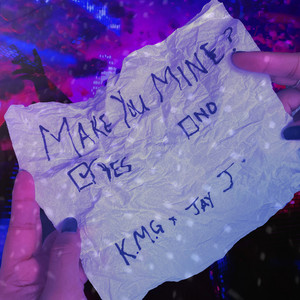 MAKE YOU MINE?
YES NO
K.M.G x JAY J